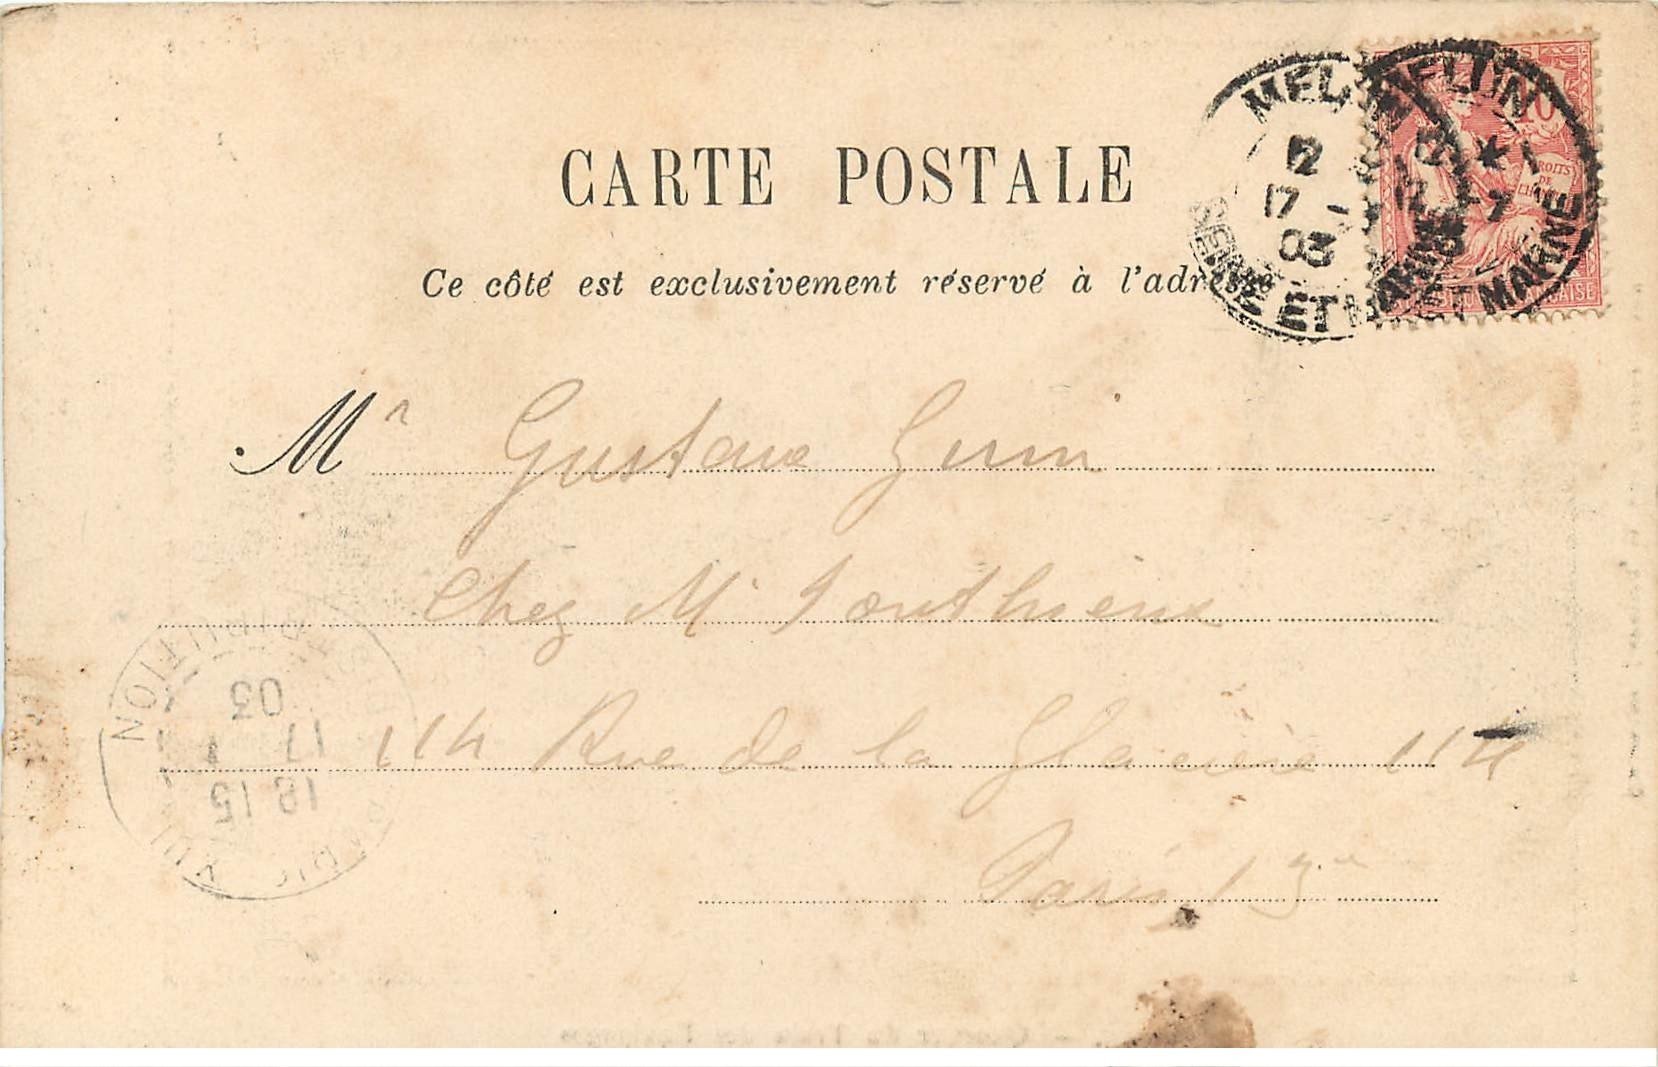 CARTE POSTALE
Ce côté est exclusivement réservé à l'adresse
MELUN
12
17 - 1
03
SEINE ET MARNE
MELUN
SEINE ET MARNE
10
DROITS
DE
L'HOMME
Mr Gustave
Chez Mr
114 Rue de la Glacière 114
Paris 13
DISTRIBUTION
12 15
17 1
03
PARIS XIII